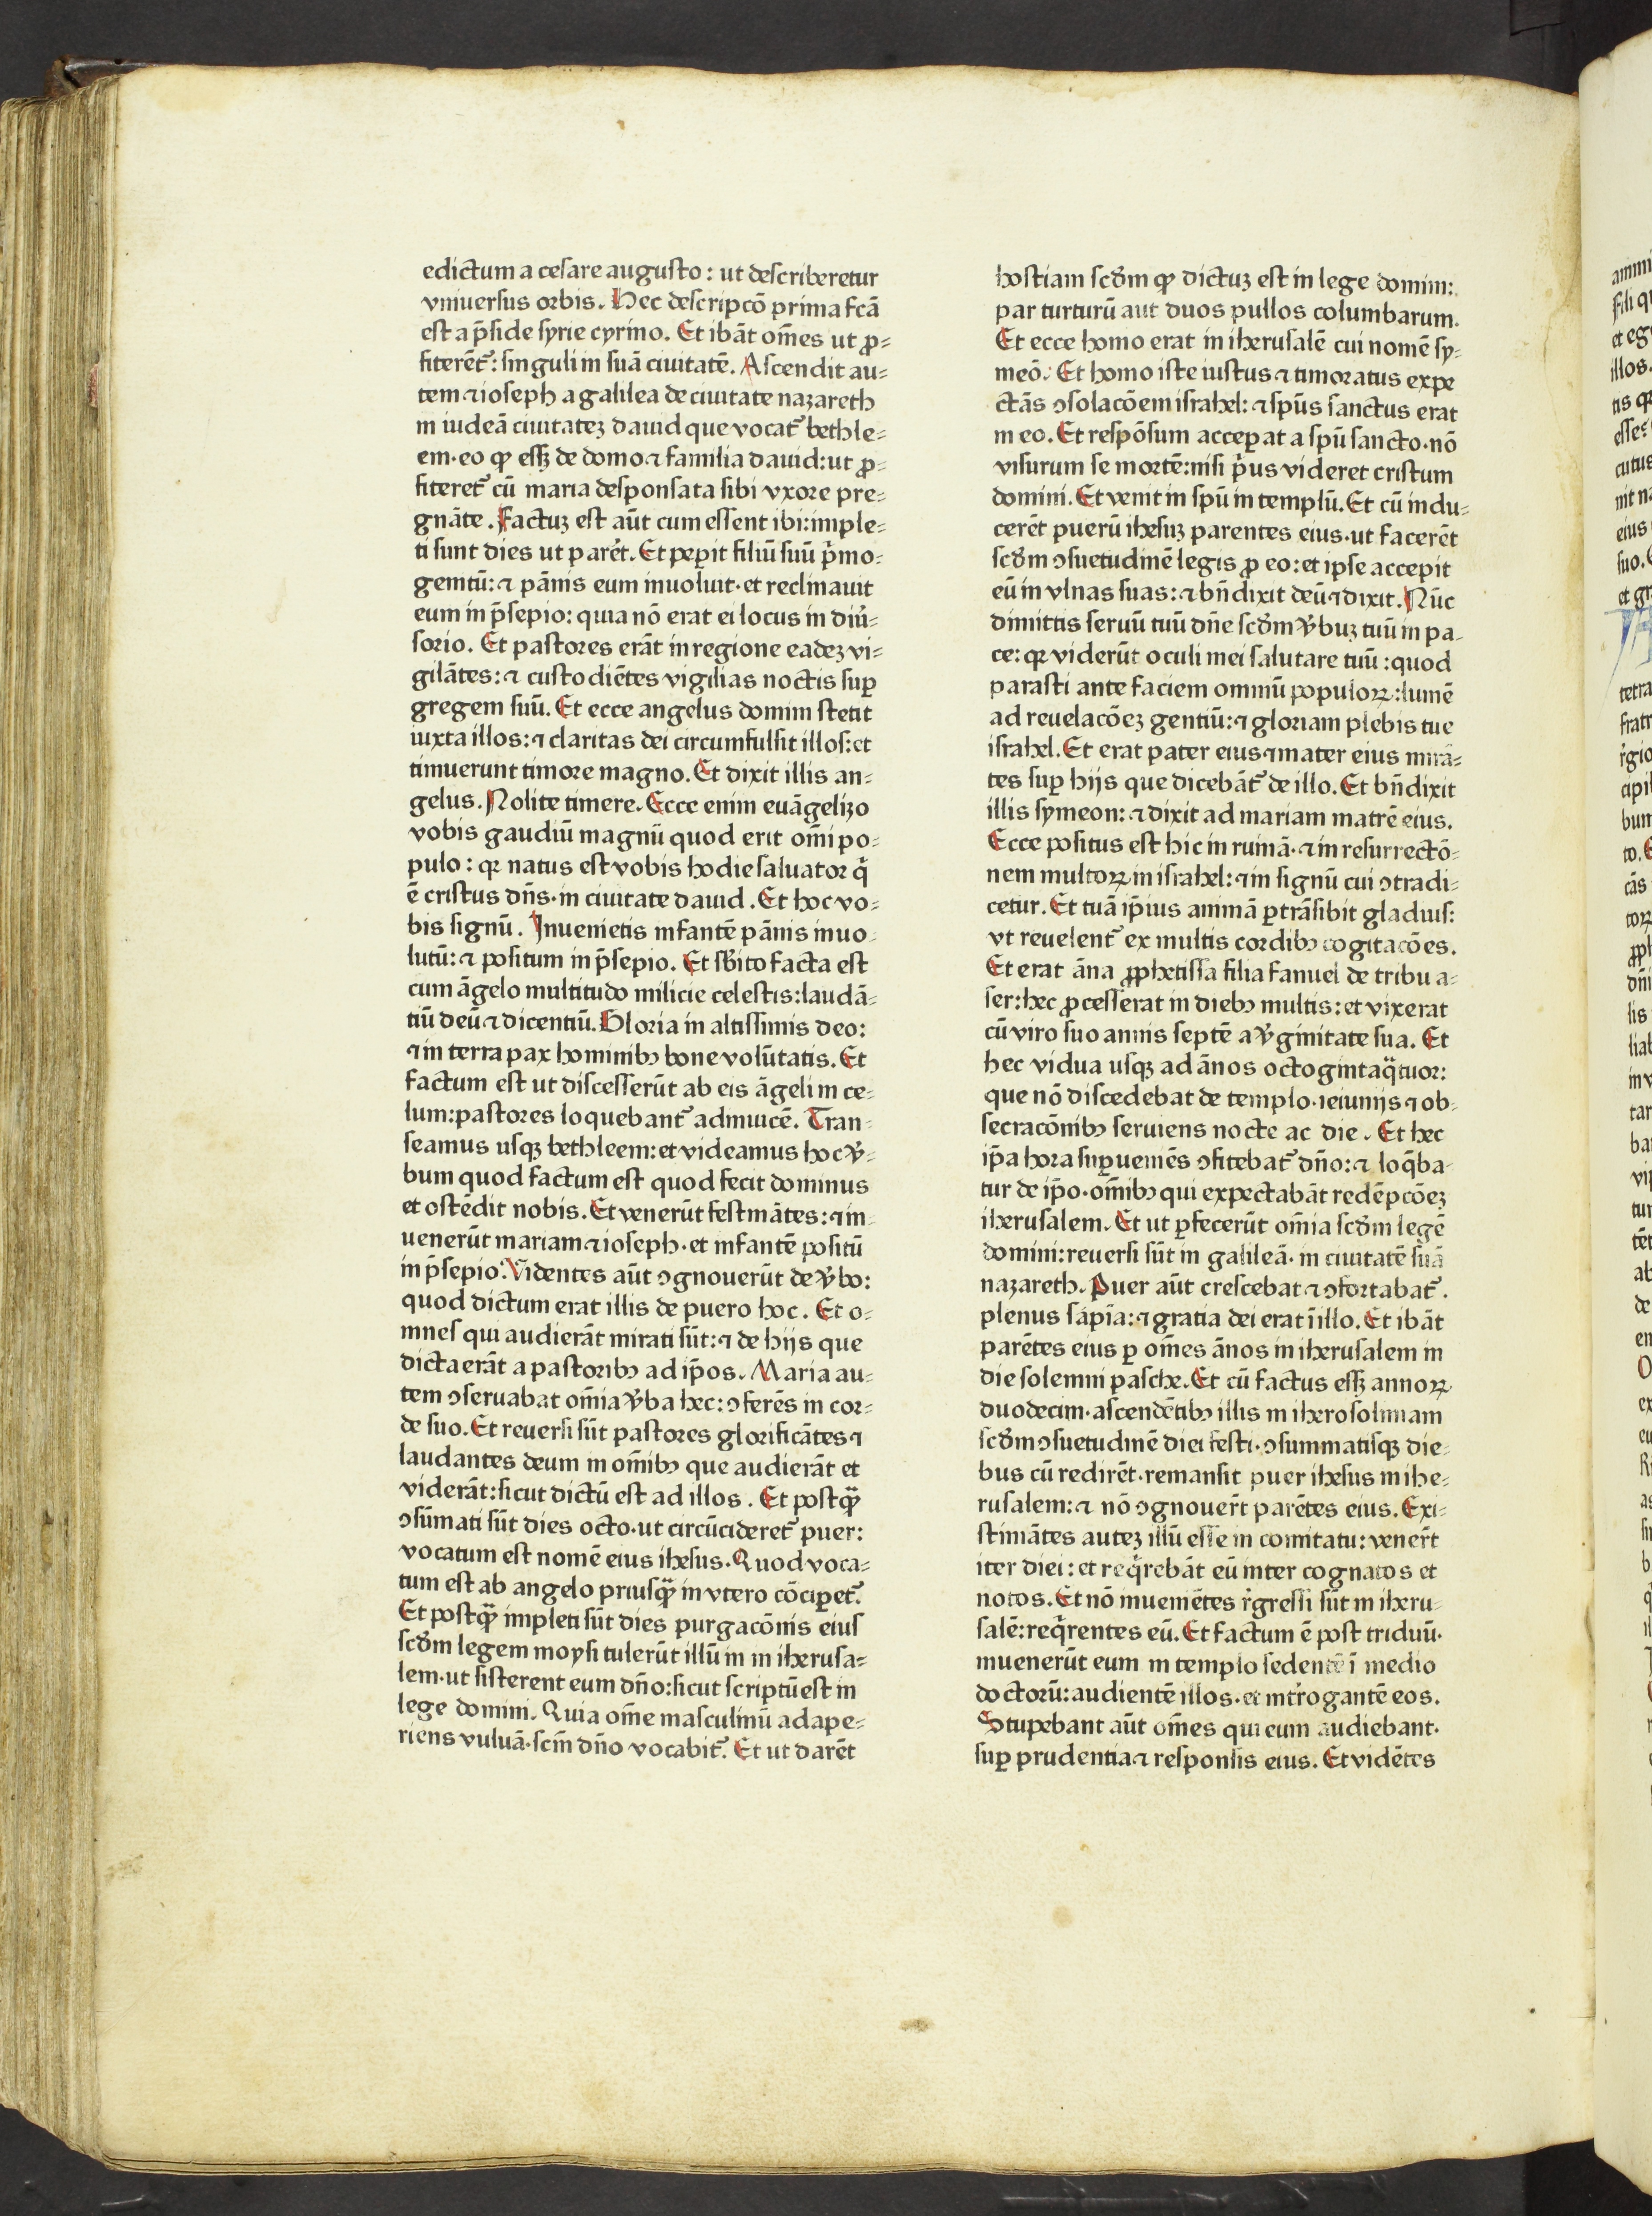 edictum a cesare augusto : ut describeretur
vniuersus orbis. Hec descripcō prima fcā
est a p̄side syrie cyrino. Et ibāt om̄es ut ꝓ⸗
fiterēt᷑: singuli in suā ciuitatē. Ascendit au⸗
tem ⁊ ioseph a galilea de ciuitate nazareth
in iudeā ciuitateꝫ dauid que vocat᷑ bethle⸗
em·eo ꝙ essꝫ de domo ⁊ familia dauid: ut ꝓ⸗
fiteret᷑ cū maria desponsata sibi vxore pre⸗
gnāte. Factuꝫ est aūt cum essent ibi: imple⸗
ti sunt dies ut paret᷑. Et peꝑit filiū suū p̄mo⸗
genitū: ⁊ pānis eum inuoluit· et reclinauit
eum in p̄sepio: quia nō erat ei locus in diu᷑⸗
sorio. Et pastores erāt in regione eadeꝫ vi⸗
gilātes: ⁊ custodiētes vigilias noctis suꝑ
gregem suū. Et ecce angelus domini stetit
iuxta illos: ⁊ claritas dei circumfulsit illos: et
timuerunt timore magno. Et dixit illis an⸗
gelus. Nolite timere. Ecce enim euāgelizo
vobis gaudiū magnū quod erit om̄i po⸗
pulo : qꝛ natus est vobis hodie saluator q̄
ē cristus dn̄s· in ciuitate dauid. Et hoc vo⸗
bis signū. Inuenietis infantē pānis inuo⸗
lutū: ⁊ positum in p̄sepio. Et sb̄ito facta est
cum āgelo multitudo milicie celestis: laudā⸗
tiū deū ⁊ dicentiū. Gloria in altissimis deo:
⁊ in terra pax hominibꝰ bone volūtatis. Et
factum est ut discesserūt ab eis āgeli in ce⸗
lum: pastores loquebant᷑ adinuicē. Tran⸗
seamus usqꝫ bethleem: et videamus hoc v̄⸗
bum quod factum est quod fecit dominus
et ostēdit nobis. Et venerūt festināntes: ⁊ in⸗
uenerūt mariam ⁊ ioseph· et infantē positū
in p̄sepio. Videntes aūt ꝯgnouerūt de v̄bo:
quod dictum erat illis de puero hoc. Et o⸗
mnes qui audierāt mirati sūt: ⁊ de hijs que
dicta erāt a pastoribꝰ ad ip̄os. Maria au⸗
tem ꝯseruabat om̄ia v̄ba hec: ꝯferēs in cor⸗
de suo. Et reuersi sūt pastores glorificātes ⁊
laudantes deum in om̄ibꝰ que audierāt et
viderāt: sicut dictū est ad illos. Et postq̄
ꝯsūmati sūt dies octo· ut circūcideret᷑ puer:
vocatum est nomē eius ihesus. Quod voca⸗
tum est ab angelo priusq̄ in vtero cōciꝑet᷑.
Et postq̄ impleti sūt dies purgacōnis eius
scd̄m legem moysi tulerūt illū in in iherusa⸗
lem· ut sisterent eum dn̄o: sicut scriptū est in
lege domini. Quia om̄e masculinū adape⸗
riens vuluā· scm̄ dn̄o vocabit᷑. Et ut darēt
hostiam scd̄m ꝙ dictuꝫ est in lege domini:
par turturū aut duos pullos columbarum.
Et ecce homo erat in iherusalē cui nomē sy⸗
meō. Et homo iste iustus ⁊ timoratus expe
ctās ꝯsolacōem israhel: ⁊ spūs sanctus erat
in eo. Et respōsum acceperat a spū sancto· nō
visurum se mortē: nisi p̄us videret cristum
domini. Et venit in spū in templū. Et cū indu⸗
cerēt puerū ihesuꝫ parentes eius· ut facerēt
scd̄m ꝯsuetudinē legis ꝓ eo: et ipse accepit
eū in vlnas suas: ⁊ bn̄dixit deū ⁊ dixit. Nūc
dimittis seruū tuū dn̄e scd̄m v̄buꝫ tuū in pa⸗
ce: qꝛ viderūt oculi mei salutare tuū : quod
parasti ante faciem omniū populoꝝ: lumē
ad reuelacōeꝫ gentiū: ⁊ gloriam plebis tue
israhel. Et erat pater eius ⁊ mater eius mirā⸗
tes suꝑ hijs que dicebāt᷑ de illo. Et bn̄dixit
illis symeon: ⁊ dixit ad mariam matrē eius.
Ecce positus est hic in ruinā· ⁊ in resurrectō⸗
nem multoꝝ in israhel: ⁊ in signū cui ꝯtradi⸗
cetur. Et tuā ip̄ius animā ꝑtrāsibit gladius:
vt reuelent᷑ ex multis cordibꝰ cogitacōes.
Et erat āna ꝓphetissa filia fanuel de tribu a⸗
ser: hec ꝓcesserat in diebꝰ multis: et vixerat
cū viro suo annis septē a v̄ginitate sua. Et
hec vidua usqꝫ ad ānos octogintaq̄tuor:
que nō discedebat de templo· ieiunijs ⁊ ob⸗
secracōnibꝰ seruiens nocte ac die. Et hec
ip̄a hora suꝑueniēs ꝯfitebat᷑ dn̄o: ⁊ loq̄ba⸗
tur de ip̄o· om̄ibꝰ qui expectabāt redēpcōeꝫ
iherusalem. Et ut ꝑfecerūt om̄ia scd̄m legē
domini: reuersi sūt in galileā· in ciuitatē suā
nazareth. Puer aūt crescebat ⁊ ꝯfortabat᷑.
plenus sapīa: ⁊ gratia dei erat ī illo. Et ibāt
parētes eius ꝑ om̄es ānos in iherusalem in
die solemni pasche. Et cū factus essꝫ annoꝝ
duodecim· ascendētibꝰ illis in iherosolimam
scd̄m ꝯsuetudinē diei festi· ꝯsummatisqꝫ die⸗
bus cū redirēt· remansit puer ihesus in ihe⸗
rusalem: ⁊ nō ꝯgnouer̄t parētes eius. Exi⸗
stimātes auteꝫ illū esse in comitatu: vener̄t
iter diei: et req̄rebāt eū inter cognatos et
notos. Et nō inueniētes r̄gressi sūt in iheru⸗
salē: req̄rentes eū. Et factum ē post triduū·
inuenerūt eum in templo sedentē ī medio
doctorū: audientē illos· et int̄rogantē eos.
Stupebant aūt om̄es qui eum audiebant·
suꝑ prudentia ⁊ responsis eius. Et vidētes